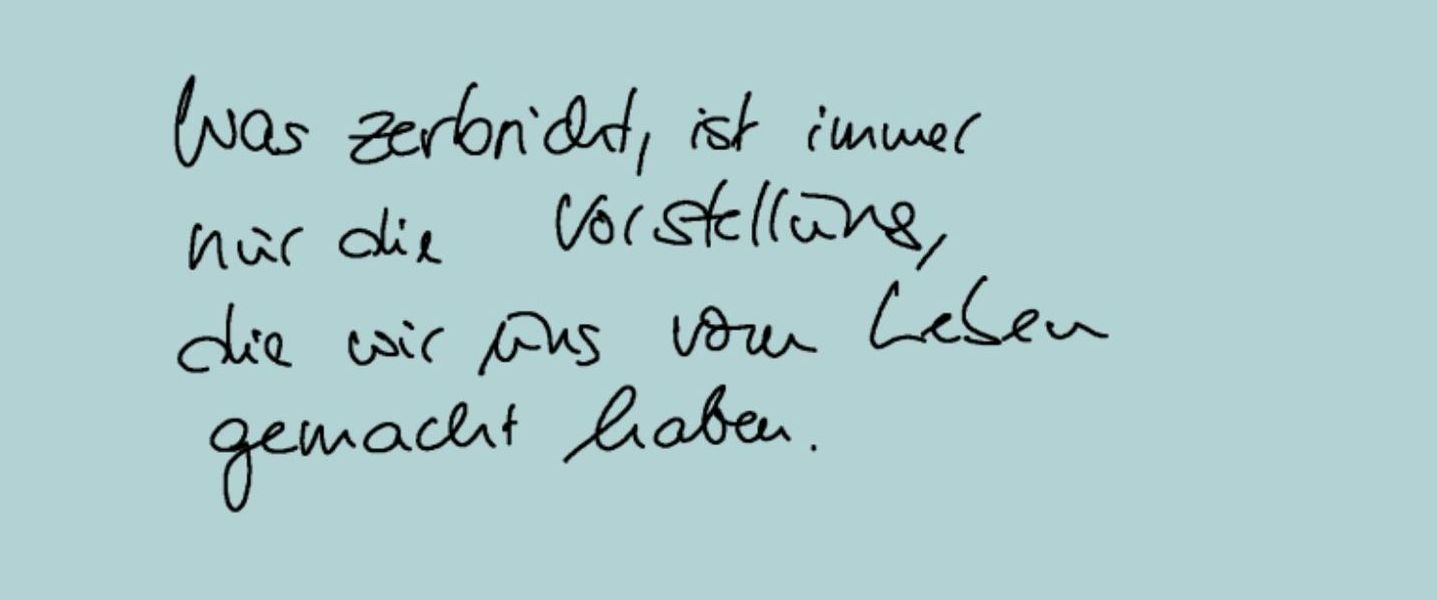 Was zerbricht, ist immer
nur die Vorstellung,
die wir uns vom Leben
gemacht haben.